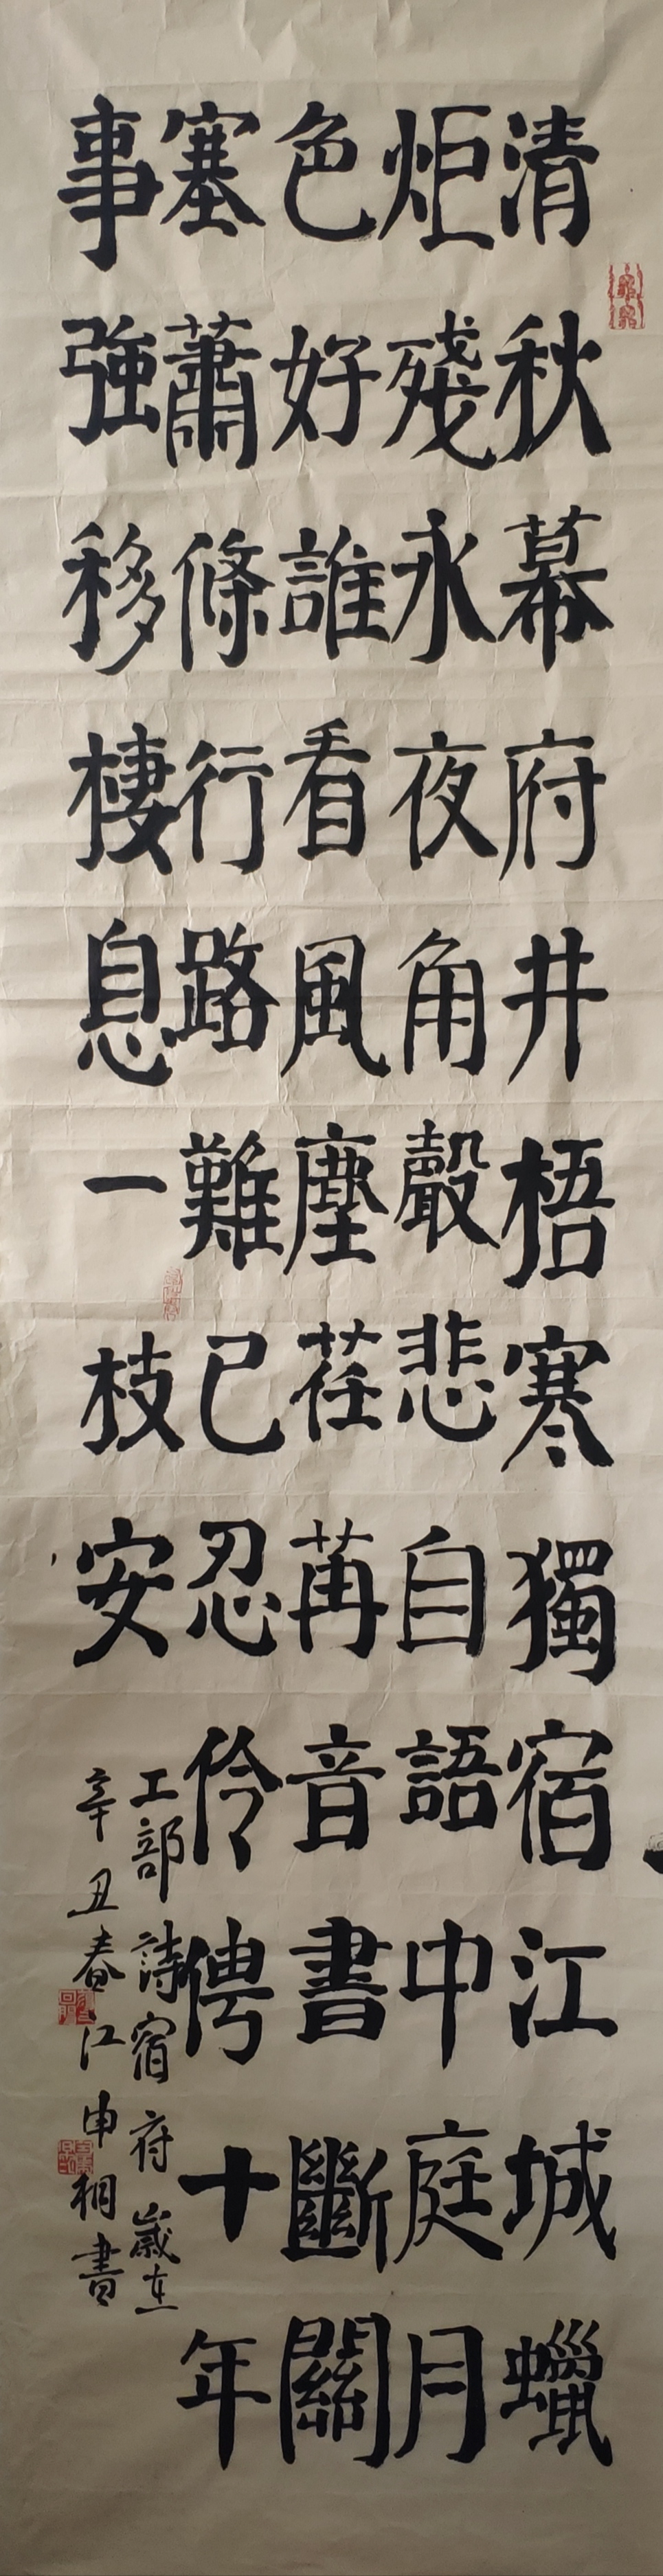 清秋幕府井梧寒獨宿江城蠟
炬殘永夜角聲悲自語中庭月
色好誰看風塵荏苒音書斷關
塞蕭條行路難已忍伶俜十年
事強移棲息一枝安
工部詩宿府歲在
辛丑春江申相書